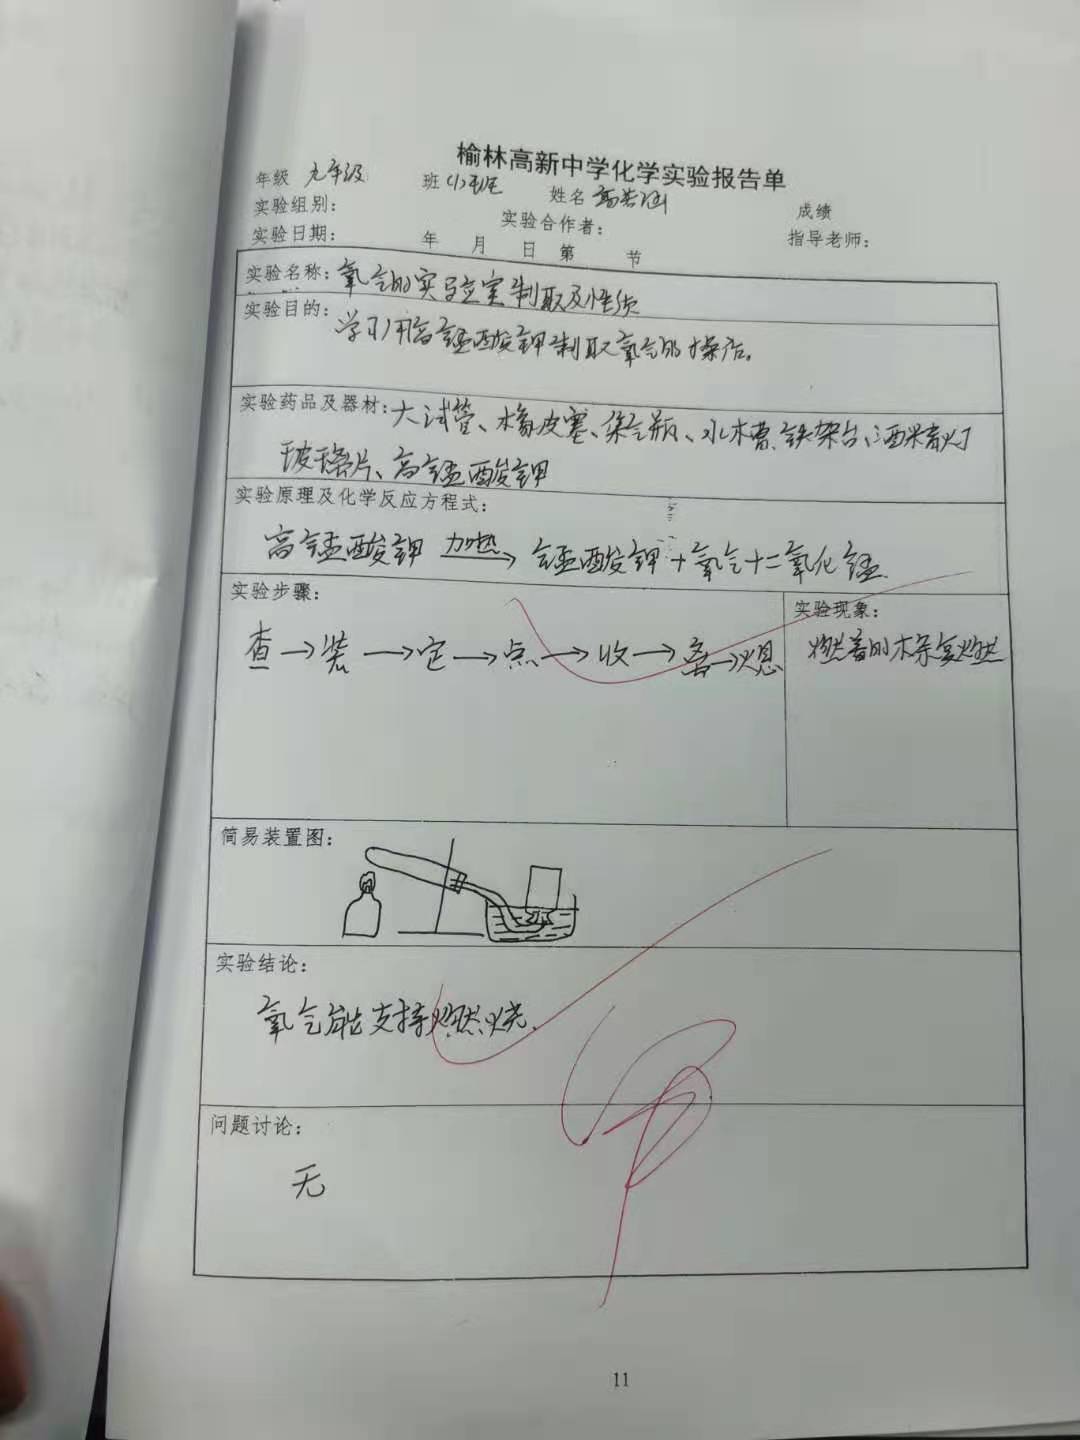 榆林高新中学化学实验报告单
年级 九年级 班 (1)班 姓名 高若涵 成绩
实验组别： 实验合作者： 指导老师：
实验日期： 年 月 日 第 节
实验名称：氧气的实验室制取及性质
实验目的：学习用高锰酸钾制取氧气的操作。
实验药品及器材：大试管、橡皮塞、集气瓶、水槽、铁架台、酒精灯
玻璃片、高锰酸钾
实验原理及化学反应方程式：
高锰酸钾 加热→ 锰酸钾+氧气+二氧化锰
实验步骤：
查→装→定→点→收→离→熄
实验现象：
燃着的木条复燃
简易装置图：
实验结论：
氧气能支持燃烧.
问题讨论：
无
11